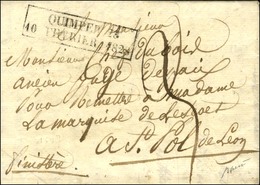 QUIMPER
10 FEVRIER 182
Monsieur
Monsieur Dubois
ancien Juge de paix
pour remettre a madame
La marquise de Lescoet
a St. Pol de Léon
finistère